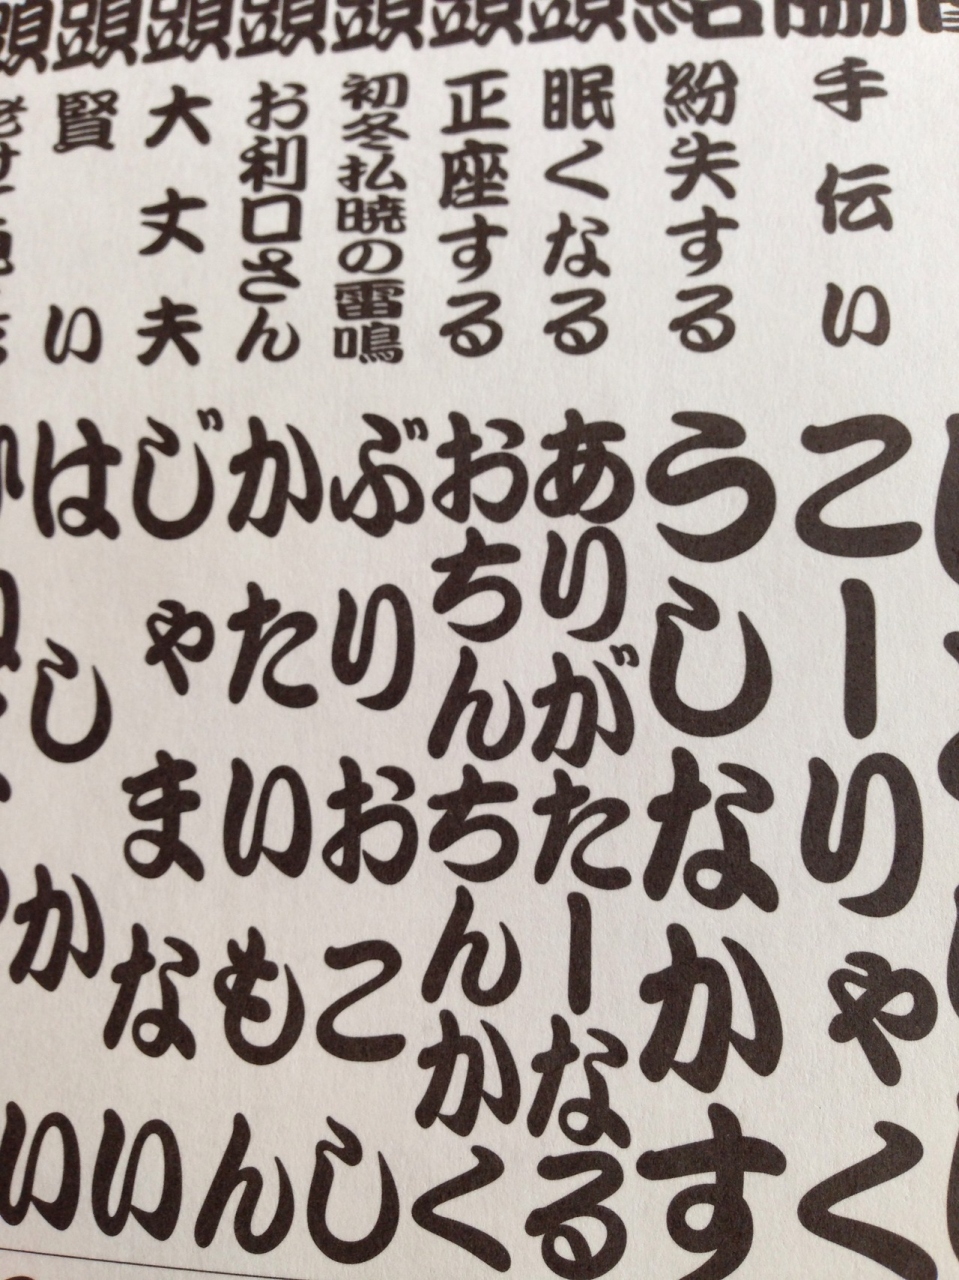 脇
手伝い
こーりゃく
結
紛失する
うしなかす
頭
眠くなる
ありがたーなる
頭
正座する
おちんちんかく
頭
初冬払暁の雷鳴
ぶりおこし
頭
お利口さん
かたいもん
頭
大丈夫
じゃまない
頭
賢い
はしかい
頭